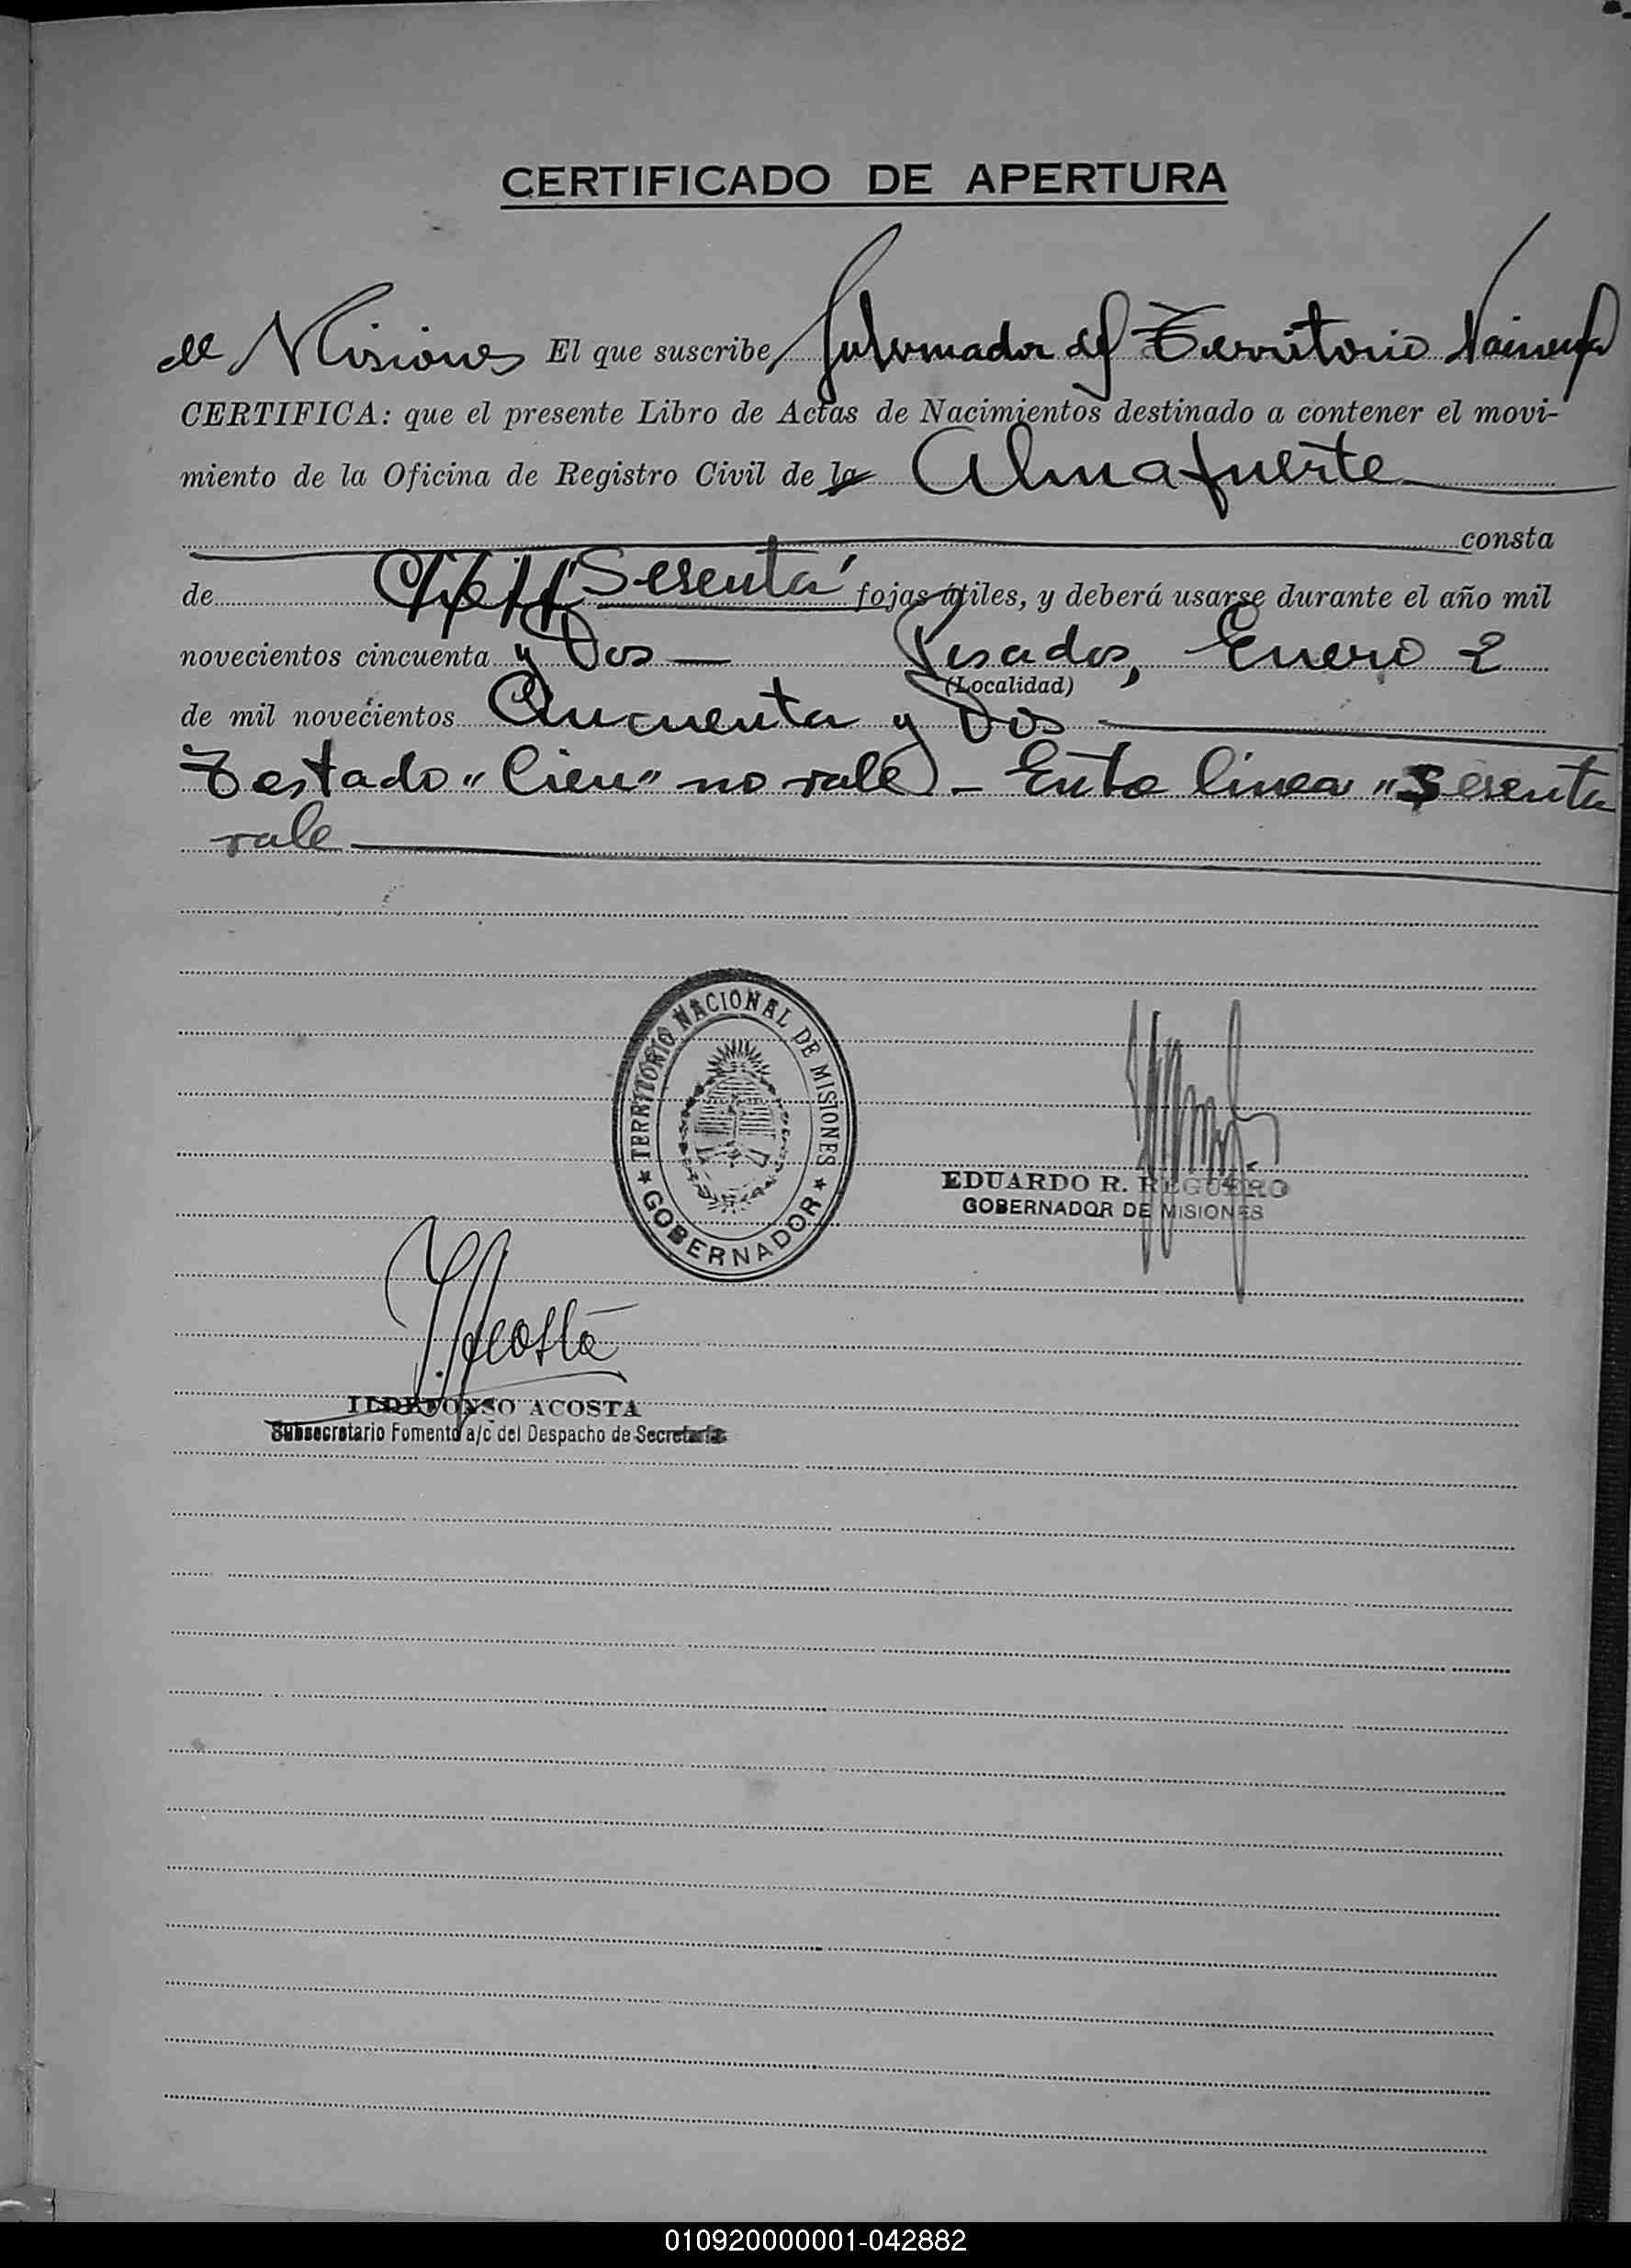 CERTIFICADO DE APERTURA
de Misiones El que suscribe, Gobernador del Territorio Nacional
CERTIFICA: que el presente Libro de Actas de Nacimientos destinado a contener el movi-
miento de la Oficina de Registro Civil de la Almafuerte
consta
de Cien Sesenta fojas útiles, y deberá usarse durante el año mil
novecientos cincuenta y Dos — Posadas, Enero 2
(Localidad)
de mil novecientos Cincuenta y Dos
Testado "Cien" no vale - Ente linea "Sesenta
vale
TERRITORIO NACIONAL DE MISIONES
GOBERNADOR
EDUARDO R. REGUERO
GOBERNADOR DE MISIONES
Acosta
ILDEFONSO ACOSTA
Subsecretario Fomento a/c del Despacho de Secretaría
010920000001-042882